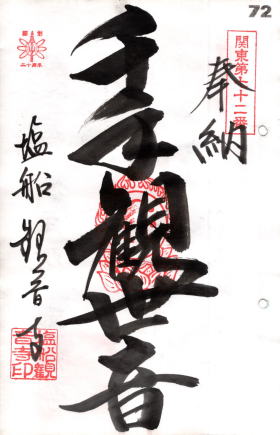 72
関東第七十二番
奉納
千手観世音
塩船観音寺
塩船観
音寺印